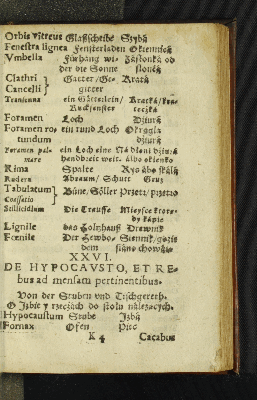 Orbis vitreus Glaßscheibe Szybá
Fenestra lignea Fensterladen Okiennicá
Vmbella Fürhang wi- Zásłoná od
der die Sonne słońcá
Clathri Gatter/ Ge- Krátá
Cancelli gitter
Transenna ein Gätterlein/ Kratká/
Foramen Loch Dziurá
Foramen ro- ein rund Loch Okrągła
tundum dziurá
Foramen pal- ein Loch eine Ná dłoni dziurá
mare handbreit weit. álbo okienko
Rima Spalte Rys álbo
Rudera Abraum/ Schutt Gruz
Tabulatum Büne, Söller Piętr/ piętro
Coassatio
Stillicidium Die Trauffe Mieysce
kápie
Lignile das Holtzhauß Drewnik
Fœnile Der Hewbo-
dem siáno chowáią
XXVI.
DE HYPOCAVSTO, ET RE-
bus ad mensam pertinentibus.
Von der Stuben und Tischgereth.
O Izbie y rzeczách do stołu należących.
Hypocaustum Stube Izbá
Fornax Ofen Piec
K 4 Cacabus